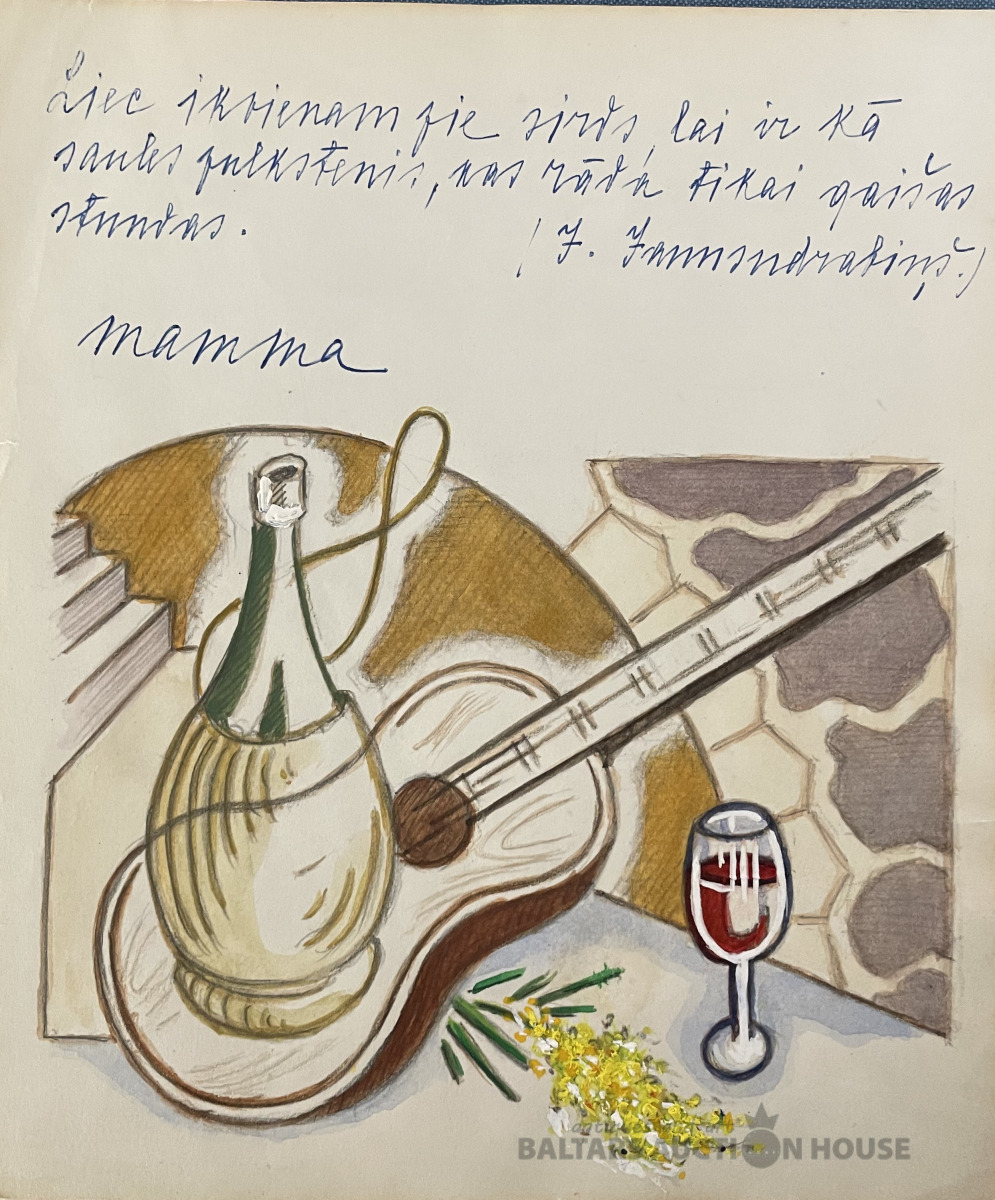 Liec ikvienam pie sirds, lai ir kā
saules pulkstenis, kas rāda tikai gaišas
stundas.
(J. Jaunsudrabiņš.)
mamma
BALTARS AUCTION HOUSE